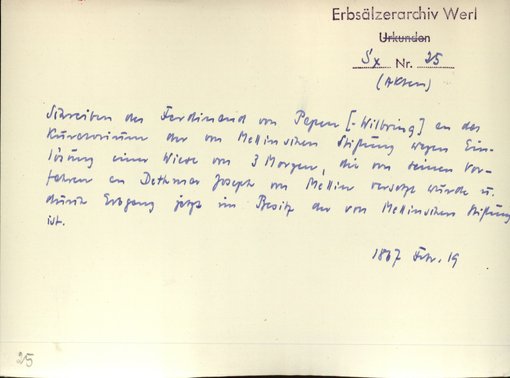 Erbsälzerarchiv Werl
Urkunden
Sx Nr. 25
(Akten)
Schreiben des Ferdinand von Papen [-Wilbring] an das
Kuratorium der von Mellinschen Stiftung wegen Ein-
lösung einer Wiese von 3 Morgen, die von seinen Vor-
fahren an Dethmar Joseph von Mellin versetzt wurde u.
durch Erbgang jetzt im Besitz der von Mellinschen Stiftung
ist.
1867 Febr. 19
25